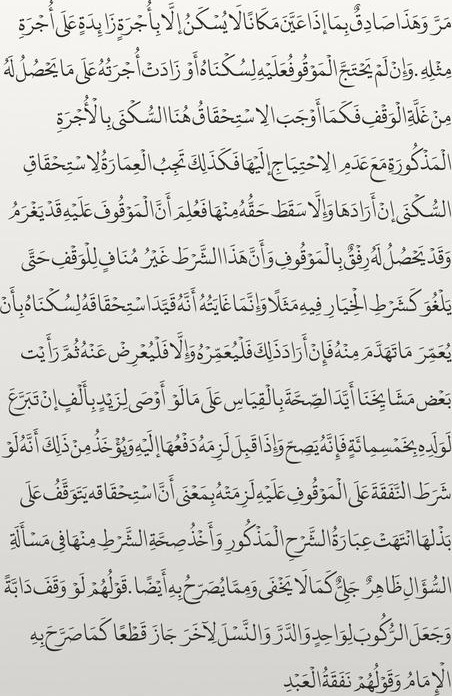 مَرَّ وَهَذَا صَادِقٌ بِمَا إذَا عَيَّنَ مَكَانًا لَا يُسْكَنُ إلَّا بِأُجْرَةٍ زَائِدَةٍ عَلَى أُجْرَةِ
مِثْلِهِ. وَإِنْ لَمْ يَحْتَجْ الْمَوْقُوفُ عَلَيْهِ لِسُكْنَاهُ أَوْ زَادَتْ أُجْرَتُهُ عَلَى مَا يَحْصُلُ لَهُ
مِنْ غَلَّةِ الْوَقْفِ فَكَمَا أَوْجَبَ الِاسْتِحْقَاقُ هُنَا السُّكْنَى بِالْأُجْرَةِ
الْمَذْكُورَةِ مَعَ عَدَمِ الِاحْتِيَاجِ إلَيْهَا فَكَذَلِكَ تَجِبُ الْعِمَارَةُ لِاسْتِحْقَاقِ
السُّكْنَى إنْ أَرَادَهَا وَإِلَّا سَقَطَ حَقُّهُ مِنْهَا فَعُلِمَ أَنَّ الْمَوْقُوفَ عَلَيْهِ قَدْ يَغْرَمُ
وَقَدْ يَحْصُلُ لَهُ رِفْقٌ بِالْمَوْقُوفِ وَأَنَّ هَذَا الشَّرْطَ غَيْرُ مُنَافٍ لِلْوَقْفِ حَتَّى
يَلْغُوَ كَشَرْطِ الْخِيَارِ فِيهِ مَثَلًا وَإِنَّمَا غَايَتُهُ أَنَّهُ قَيَّدَ اسْتِحْقَاقَهُ لِسُكْنَاهُ بِأَنْ
يُعَمِّرَ مَا تَهَدَّمَ مِنْهُ فَإِنْ أَرَادَ ذَلِكَ فَلْيُعَمِّرْهُ وَإِلَّا فَلْيُعْرِضْ عَنْهُ ثُمَّ رَأَيْت
بَعْضَ مَشَايِخِنَا أَيَّدَ الصِّحَّةَ بِالْقِيَاسِ عَلَى مَا لَوْ أَوْصَى لِزَيْدٍ بِأَلْفٍ إنْ تَبَرَّعَ
لِوَلَدِهِ بِخَمْسِمِائَةٍ فَإِنَّهُ يَصِحُّ وَإِذَا قَبِلَ لَزِمَهُ دَفْعُهَا إلَيْهِ وَيُؤْخَذُ مِنْ ذَلِكَ أَنَّهُ لَوْ
شَرَطَ النَّفَقَةَ عَلَى الْمَوْقُوفِ عَلَيْهِ لَزِمَتْهُ بِمَعْنَى أَنَّ اسْتِحْقَاقَه يَتَوَقَّفُ عَلَى
بَذْلِهَا انْتَهَتْ عِبَارَةُ الشَّرْحِ الْمَذْكُورِ وَأَخْذُ صِحَّةِ الشَّرْطِ مِنْهَا فِي مَسْأَلَةِ
السُّؤَالِ ظَاهِرٌ جَلِيٌّ كَمَا لَا يَخْفَى وَمِمَّا يُصَرِّحُ بِهِ أَيْضًا. قَوْلُهُمْ لَوْ وَقَفَ دَابَّةً
وَجَعَلَ الرُّكُوبَ لِوَاحِدٍ وَالدَّرَّ وَالنَّسْلَ لِآخَرَ جَازَ قَطْعًا كَمَا صَرَّحَ بِهِ
الْإِمَامُ وَقَوْلُهُمْ نَفَقَةُ الْعَبْدِ